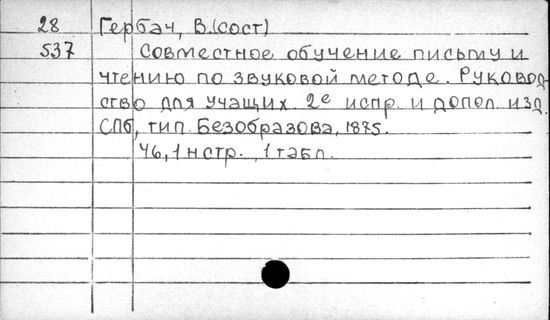 28 Гербач, В.(сост)
537 Совместное обучение письму и
чтению по звуковой методе. Руковод-
ство для учащих. 2е испр. и допол. изд.
СПб, тип. Безобразова, 1875.
46, 1 н стр., 1 табл.